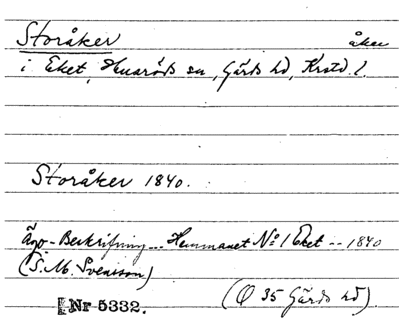 Storåker åker
i Eket, Huaröds sn, Gärds hd, Krstd. l.
Storåker 1840.
Ägo-Beskrifning... Hemmanet No 1 Eket -- 1840
(S. M. Svensson)
(Ö 35 Gärds hd).
Nr 5332.